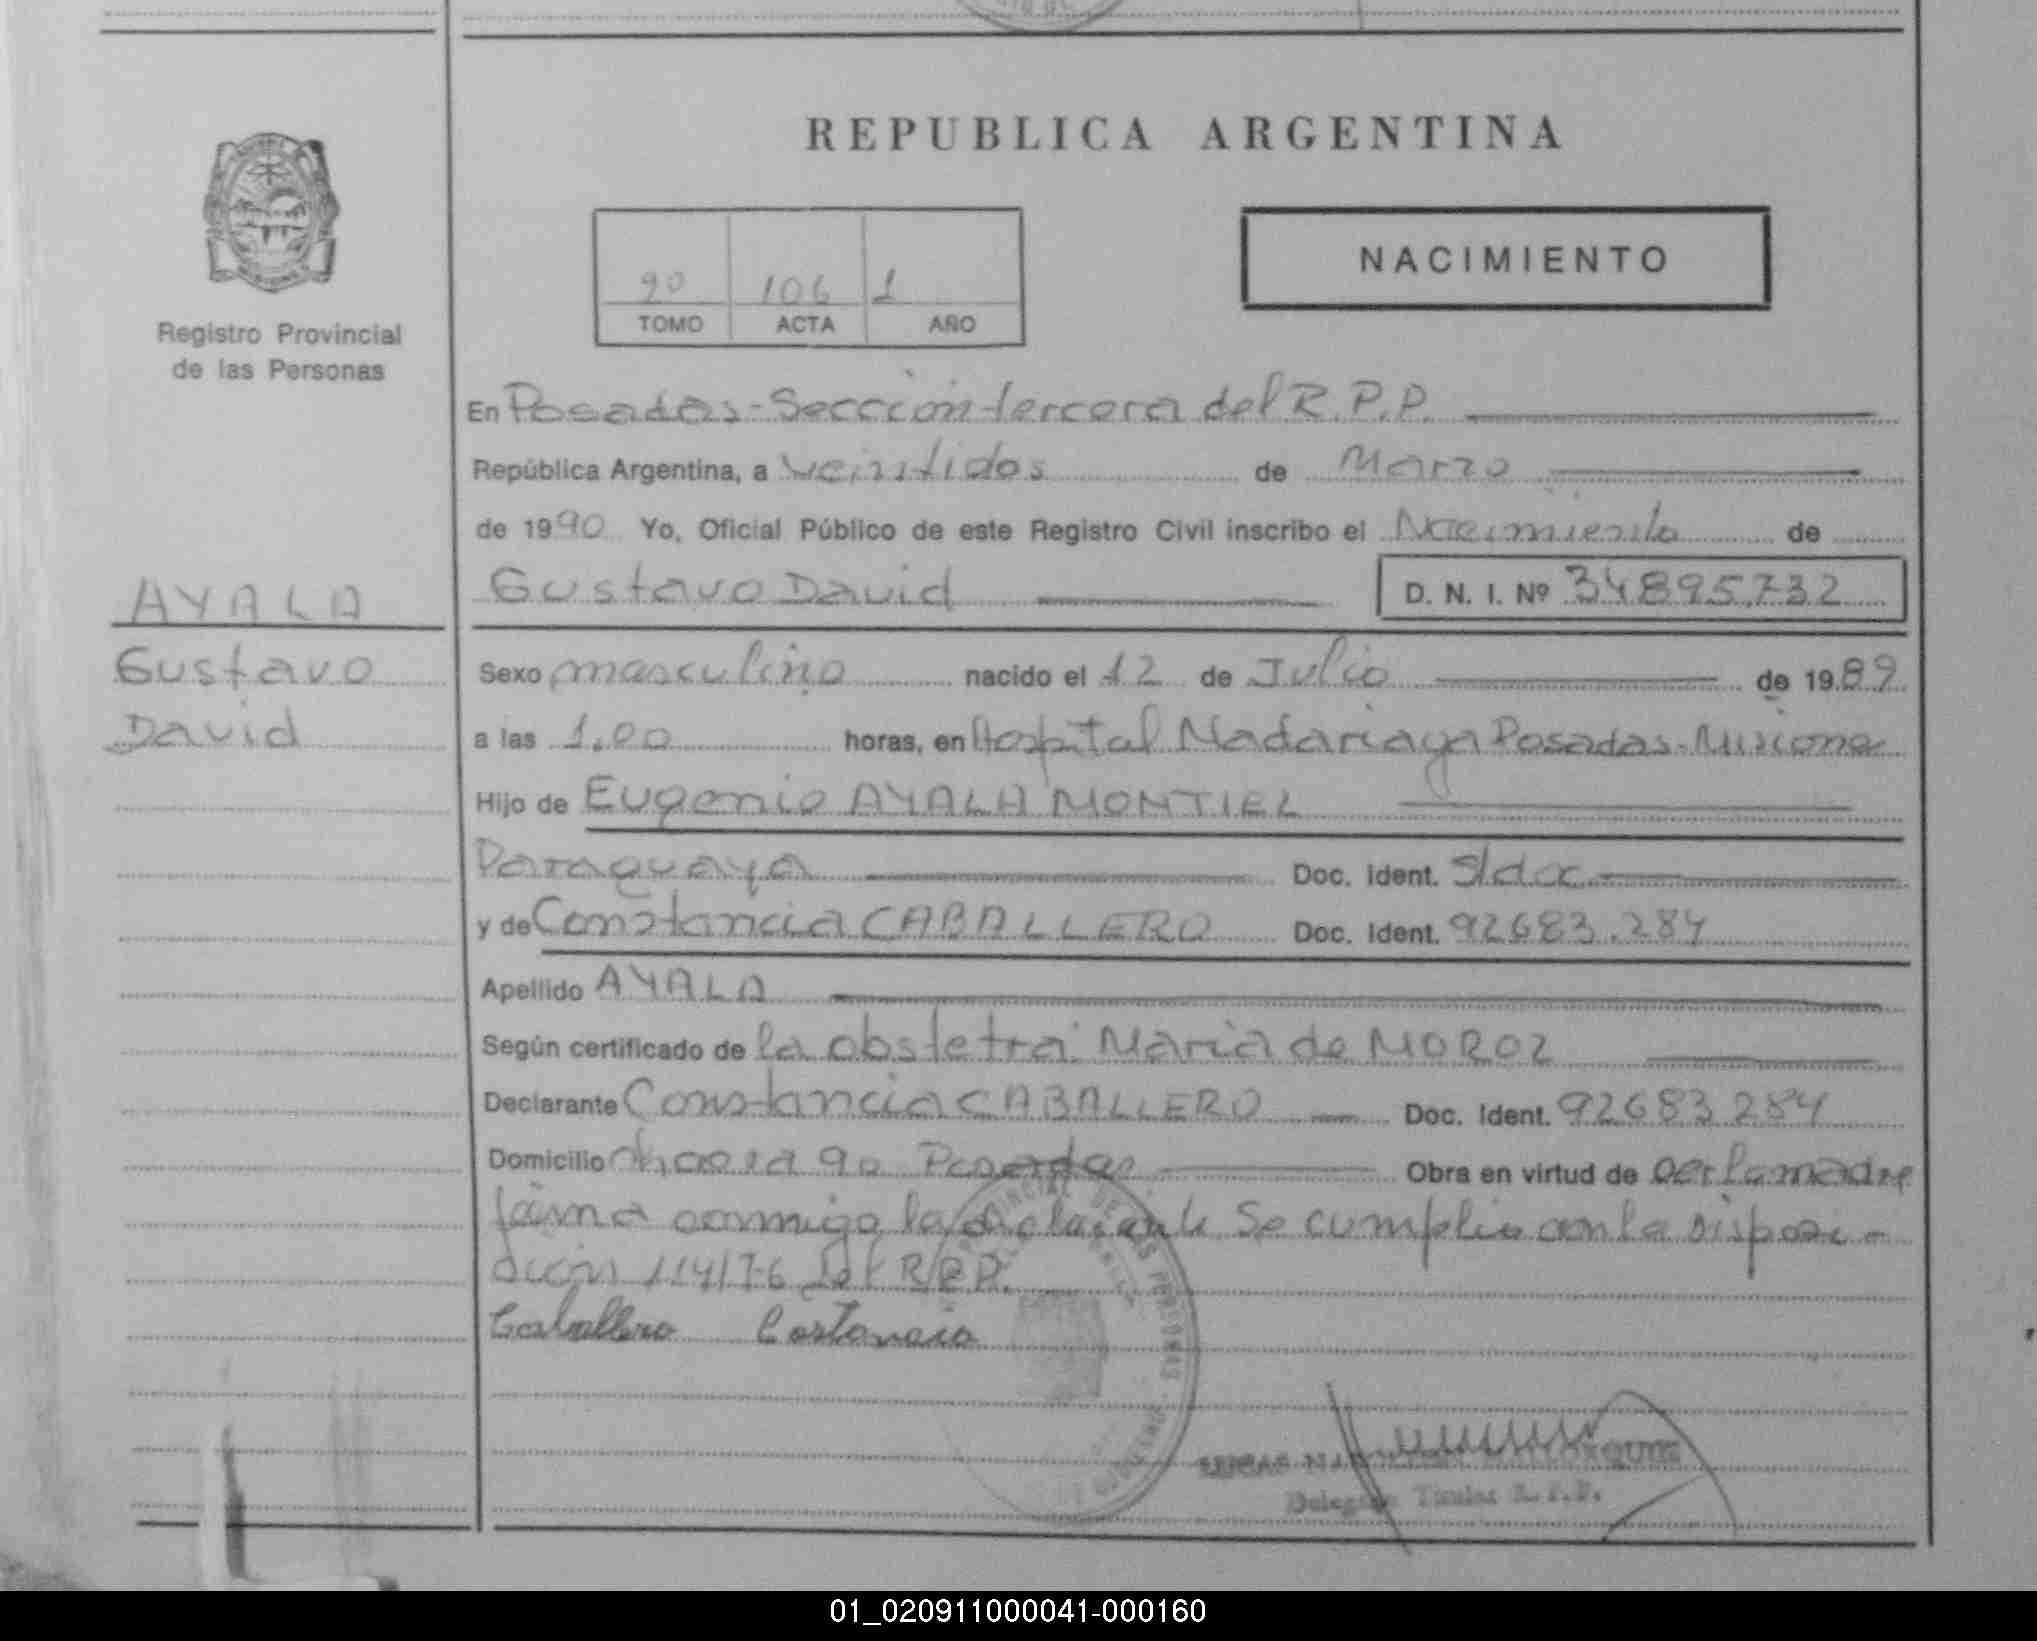 REPUBLICA ARGENTINA
NACIMIENTO
90 106 1
TOMO ACTA AÑO
Registro Provincial
de las Personas
En Posadas-Seccción tercera del R.P.P.
República Argentina, a veintidos de Marzo
de 1990 Yo, Oficial Público de este Registro Civil inscribo el Nacimiento de
AYALA
Gustavo David D. N. I. Nº 34895.732
Gustavo
David
Sexo masculino nacido el 12 de Julio de 1989
a las 1.00 horas, en Hospital Madariaga Posadas-Misiones
Hijo de Eugenio AYALA MONTIEL
Paraguaya Doc. Ident. S/doc
y de Constancia CABALLERO Doc. Ident. 92683.284
Apellido AYALA
Según certificado de la obstetra: Maria de MOROZ
Declarante Constancia CABALLERO Doc. Ident. 92683284
Domicilio chacra 90 Posadas Obra en virtud de ser la madre
conmigo la declarante Se cumplio con la disposi-
ción 114/76 del R.P.P.
Caballero Costancia
Delegado Titular R.P.P.
01_020911000041-000160